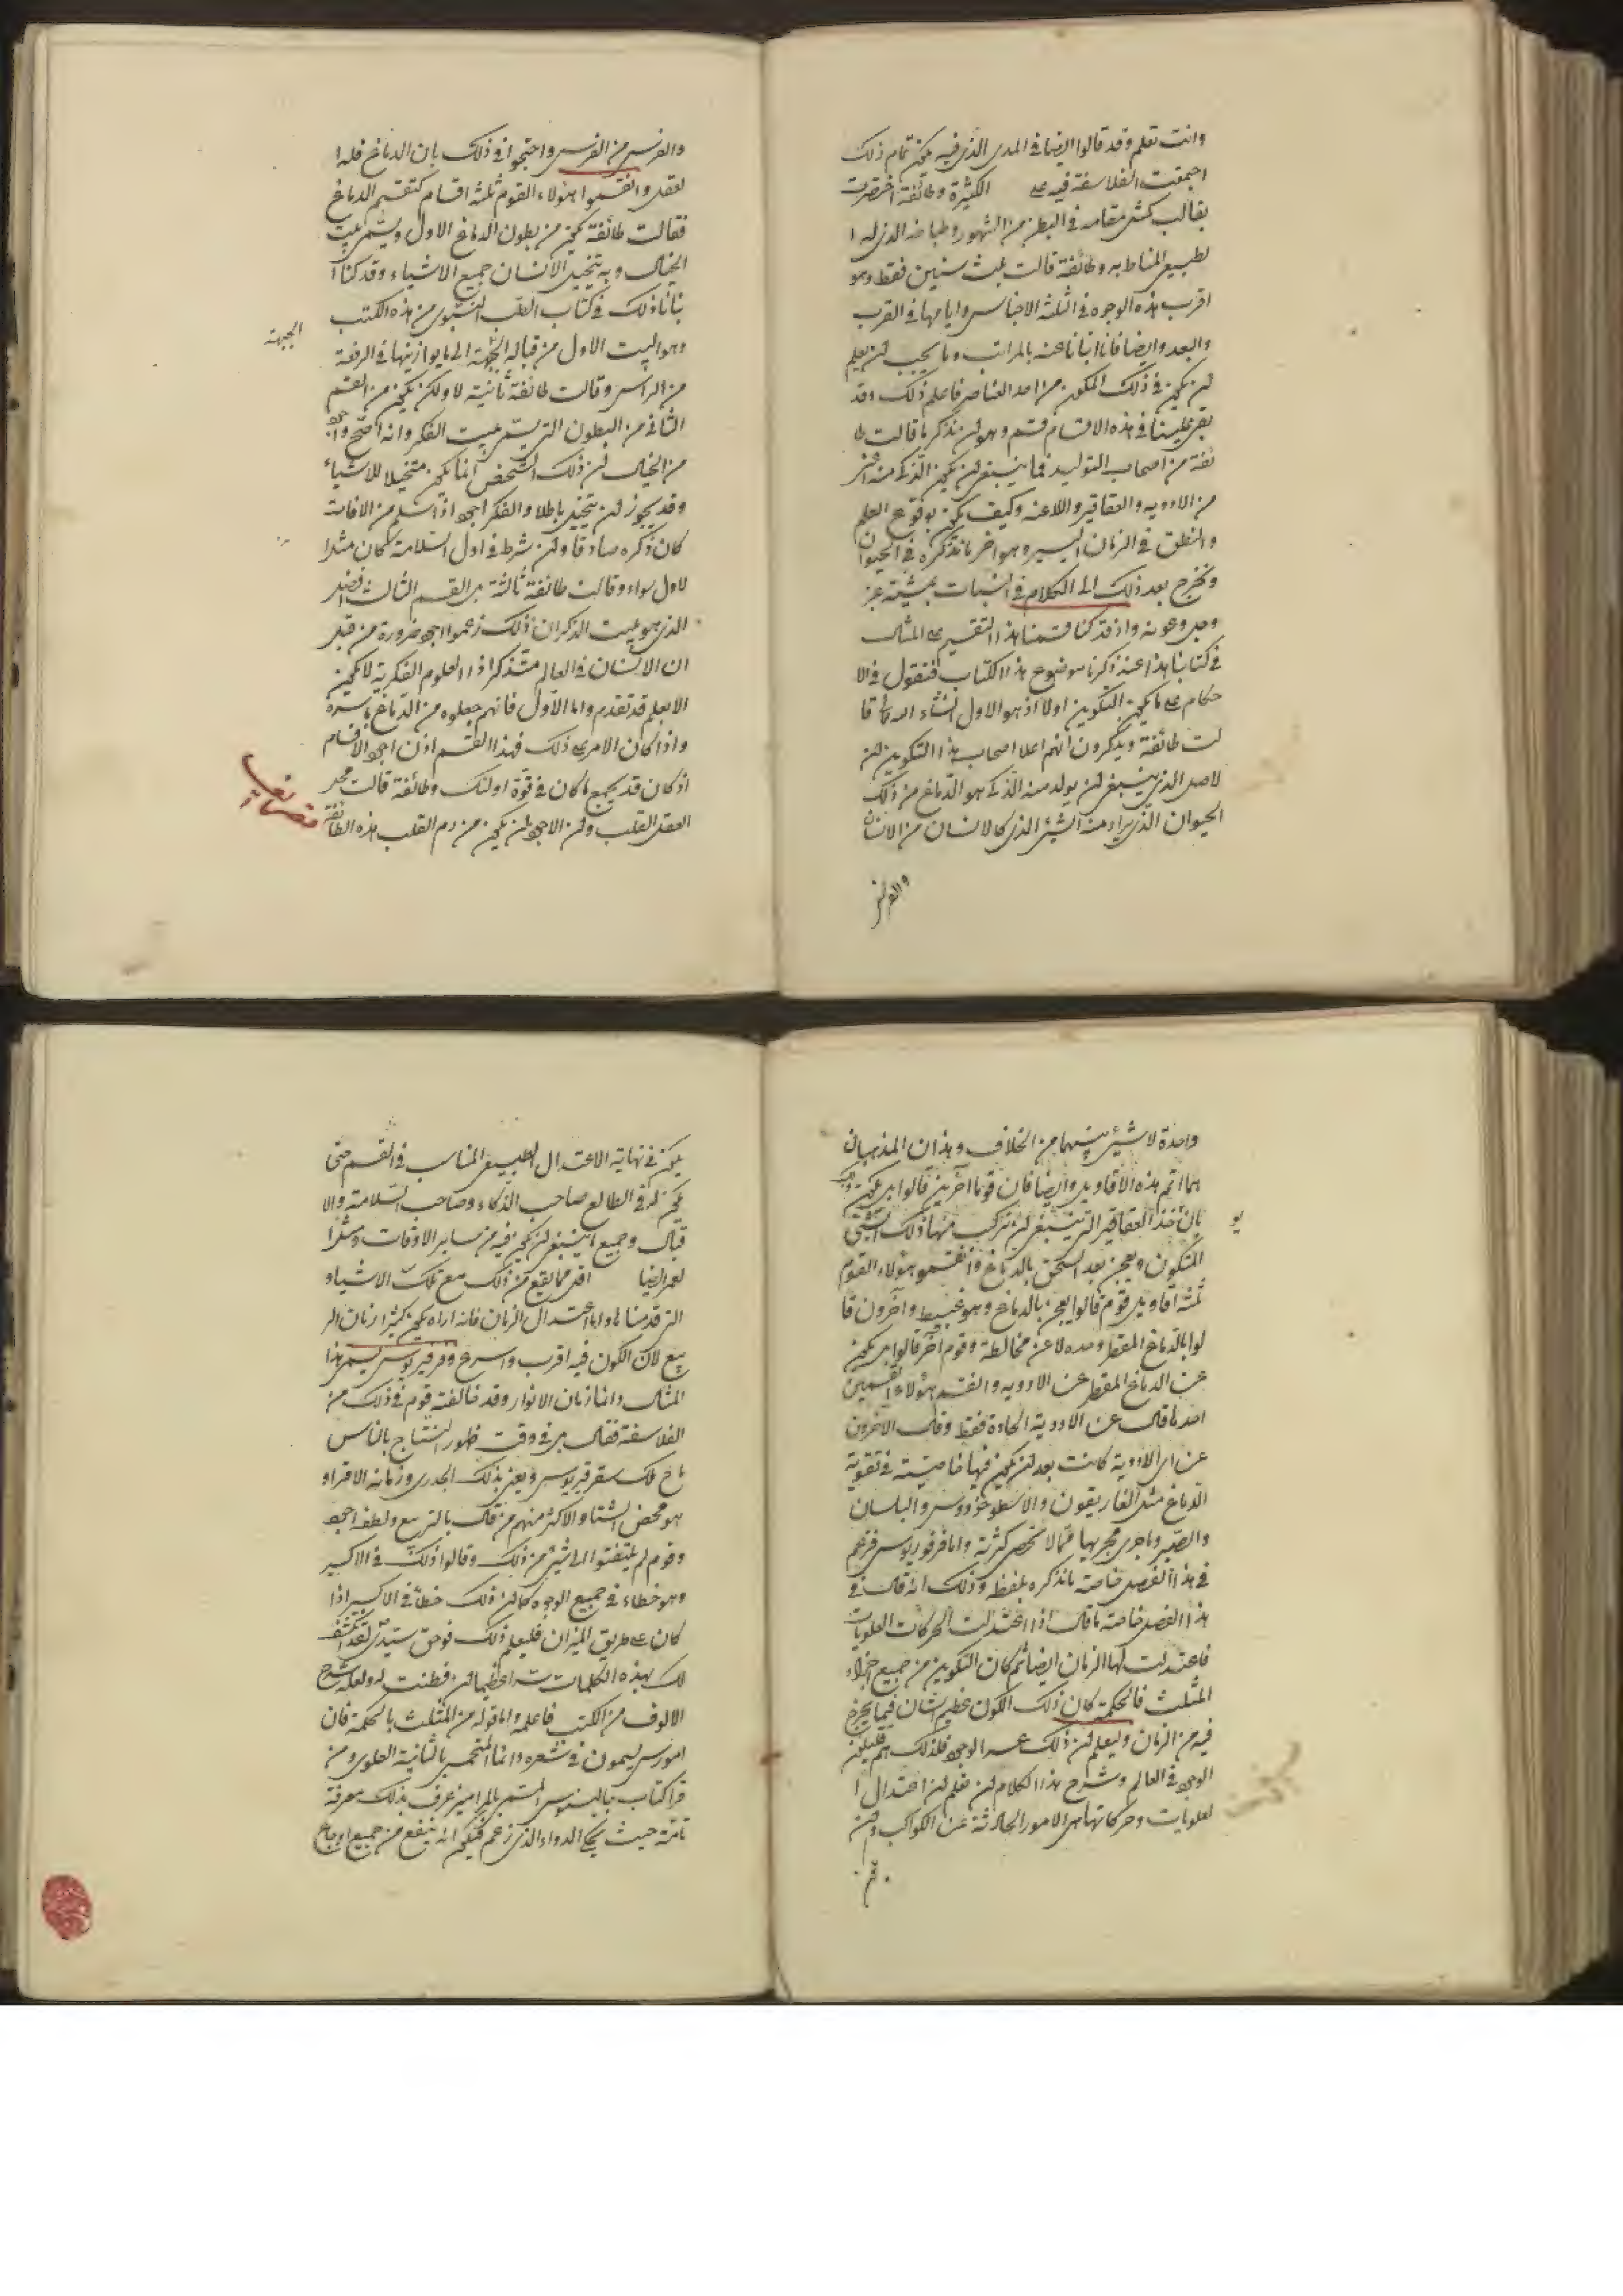 وانت تعلم وقد قالوا ايضا في المدى الذي فيه يكون تمام ذلك
اجمعت الفلاسفة فيه على الكثيرة وطائفة اختصرت
بقالب كمثل مقامه في البطن من الشهور وطباخه الذي له ا
لطبيعي المناط به وطائفة قالت ثلث سنين فقط وهو
اقرب هذه الوجوه في الثلثة الاجناس وايامها في القرب
والبعد وايضا فانا انبأنا عنه بالمراتب وما يجب ان يعلم
ان يكون في ذلك المكون من احد العناصر فاعلم ذلك وقد
بقى علينا في هذه الاقسام قسم وهو ان نذكر ما قالت طا
ئفة من اصحاب التوليد فيما ينبغي ان يكون الذي منه
من الادوية والعقاقير وكيف يكون بوقوع العلم
والنطق في الزمان اليسير وهو اخر ما نذكره في الحيوان
ونخرج بعد ذلك الى الكلام في النبات بمشية عز
وجل وعونه واذ قد كنا قسمنا هذا التقسيم على المثال
في كتابنا هذا عند ذكرنا موضوع هذا الكتاب فنقول في الا
حكام على ما يكون التكوين اولا اذ هو الاول
لت طائفة ويذكرون انهم اعلا اصحاب هذا التكوين ان
لاصل الذي ينبغي ان يولد منه الذي هو الدماغ من ذلك
الحيوان الذي يراد منه الشئ الذي كالانسان من الانسان
والفرس
والفرس من الفرس واحتجوا في ذلك بان الدماغ فله ا
لعقل وانقسموا هؤلاء القوم ثلثة اقسام كتقسيم الدماغ
فقالت طائفة يكون من بطون الدماغ الاول ويسمى بيت
الخيال وبه يتخيل الانسان جميع الاشياء وقد كنا ا
نبانا ذلك في كتاب الطب النبوى من هذه الكتب
وهو البيت الاول من قبالة الجبهة الى ما يوازيها في الرفعة
الجبهة
من الراس وقالت طائفة ثانية لا ولكن يكون من القسم
الثاني من البطون التي يسمى بيت الفكر وانه اصح واجود
من الخيال لان ذلك الشخص انما يكون متخيلا للاشياء
وقد يجوز ان يتخيل باطلا والفكر اجود اذا سلم من الافات
كان ذكره صادقا وان شرط في اول السلامة كان مثل ا
لاول سواء وقالت طائفة ثالثة بل القسم الثالث افضل
الذي هو بيت الذكر لان ذلك زعموا اجود ضرورة من قبل
ان الانسان في العالم متذكر اذ العلوم الفكرية لا تكون
الا بعلم قد تقدم واما الاول فانهم جعلوه من الدماغ باسره
واذا كان الامر على ذلك فهذا القسم اذن اجود الاقسام
اذ كان قد يجمع ما كان في قوة اولئك وطائفة قالت محل
العقل القلب وان الاجود ان يكون من دم القلب هذه الطائفة
واحدة لا شئ بينهما من الخلاف وهذان المذهبان
هما اتم هذه الاقاويل وايضا فان قوما آخرين قالوا بل يكون
بان تؤخذ العقاقير التي ينبغي ان يركب منها ذلك الشئ
المتكون ويعجن بعد السحق بالدماغ وانقسموا هؤلاء القوم
ثلثة اقاويل قوم قالوا يعجن بالدماغ وهو عبيط وآخرون قا
لوا بالدماغ المقطر وحده لا عن مخالطة وقوم آخر قالوا بل يكون
عن الدماغ المقطر عن الادوية وانقسم هؤلاء القسمين
احدها قال عن الادوية الحادة فقط وقال الآخرون
عن اى الادوية كانت بعد ان يكون فيها خاصية في تقوية
الدماغ مثل الغاريقون والاسطوخودوس والبلسان
والصبر وما جرى مجريها مما لا تحصى كثرته واما فرفوريوس فزعم
في هذا الفصل خاصة ما نذكره بلفظه وذلك انه قال في
هذا الفصل خاصة ما قال اذا اعتدلت الحركات العلويات
فاعتدلت لها الزمان ايضا ثم كان التكوين من جميع اجزاء
المثلث فالحكمة كان ذلك الكون عظيم الشان فيما يخرج
فيه من الزمان وليعلم ان ذلك عسر الوجود فلذلك هم قليلين
الوجود في العالم وشرح هذا الكلام ان تعلم ان اعتدال ا
لعلويات وحركاتها هى الامور الحادثة عن الكواكب وان
يكون في نهاية الاعتدال الطبيعى المناسب في القسم حتى
يكون له في الطالع صاحب الذكاء وصاحب السلامة والا
قبال وجميع ما ينبغي ان يكون فيه من ساير الاوقات
اقل مما يقع من ذلك مع تلك الاشياء
التي قدمناها واما اعتدال الزمان فانه اراه يكون كثيرا زمان الر
بيع لان الكون فيه اقرب واسرع وفرفريوس يسمى هذا
المثال دائما زمان الانوار وقد خالفته قوم في ذلك من
الفلاسفة فقال بل في وقت ظهور النتاج بالناس
هو محض الشتا والاكثر منهم من قال بالربيع ولطفه اجود
وقوم لم يلتفتوا الى شئ من ذلك وقالوا ذلك في الاكسير
وهو خطاء في جميع الوجوه كما ان ذلك خطأ في الاكسير اذا
كان على طريق الميزان فليعلم ذلك فوحق سيدى لقد انكشف
لك بهذه الكلمات سرا عظيما ان فطنت له ولعله شرح
الالوف من الكتب فاعلمه واما قوله من المثلث بالحكمة فان
قرا كتاب جالينوس المسمى بالميامر عرف ذلك معرفة
تامة حيث يحكي الدواء الذي زعم فيلن انه ينفع من جميع اوجاع